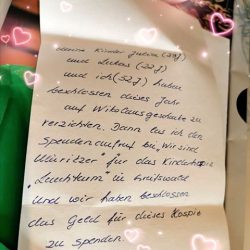 meine Kinder Julia (29J)
und Lukas (22J)
und ich (52J) haben
beschlossen dieses Jahr
auf Nikolausgeschenke zu
verzichten. Dann las ich den
Spendenaufruf bei „Wir sind
Müritzer" für das Kinderhospiz
„Leuchtturm" in Greifswald
Und wir haben beschlossen
das Geld für dieses Hospiz
zu spenden.